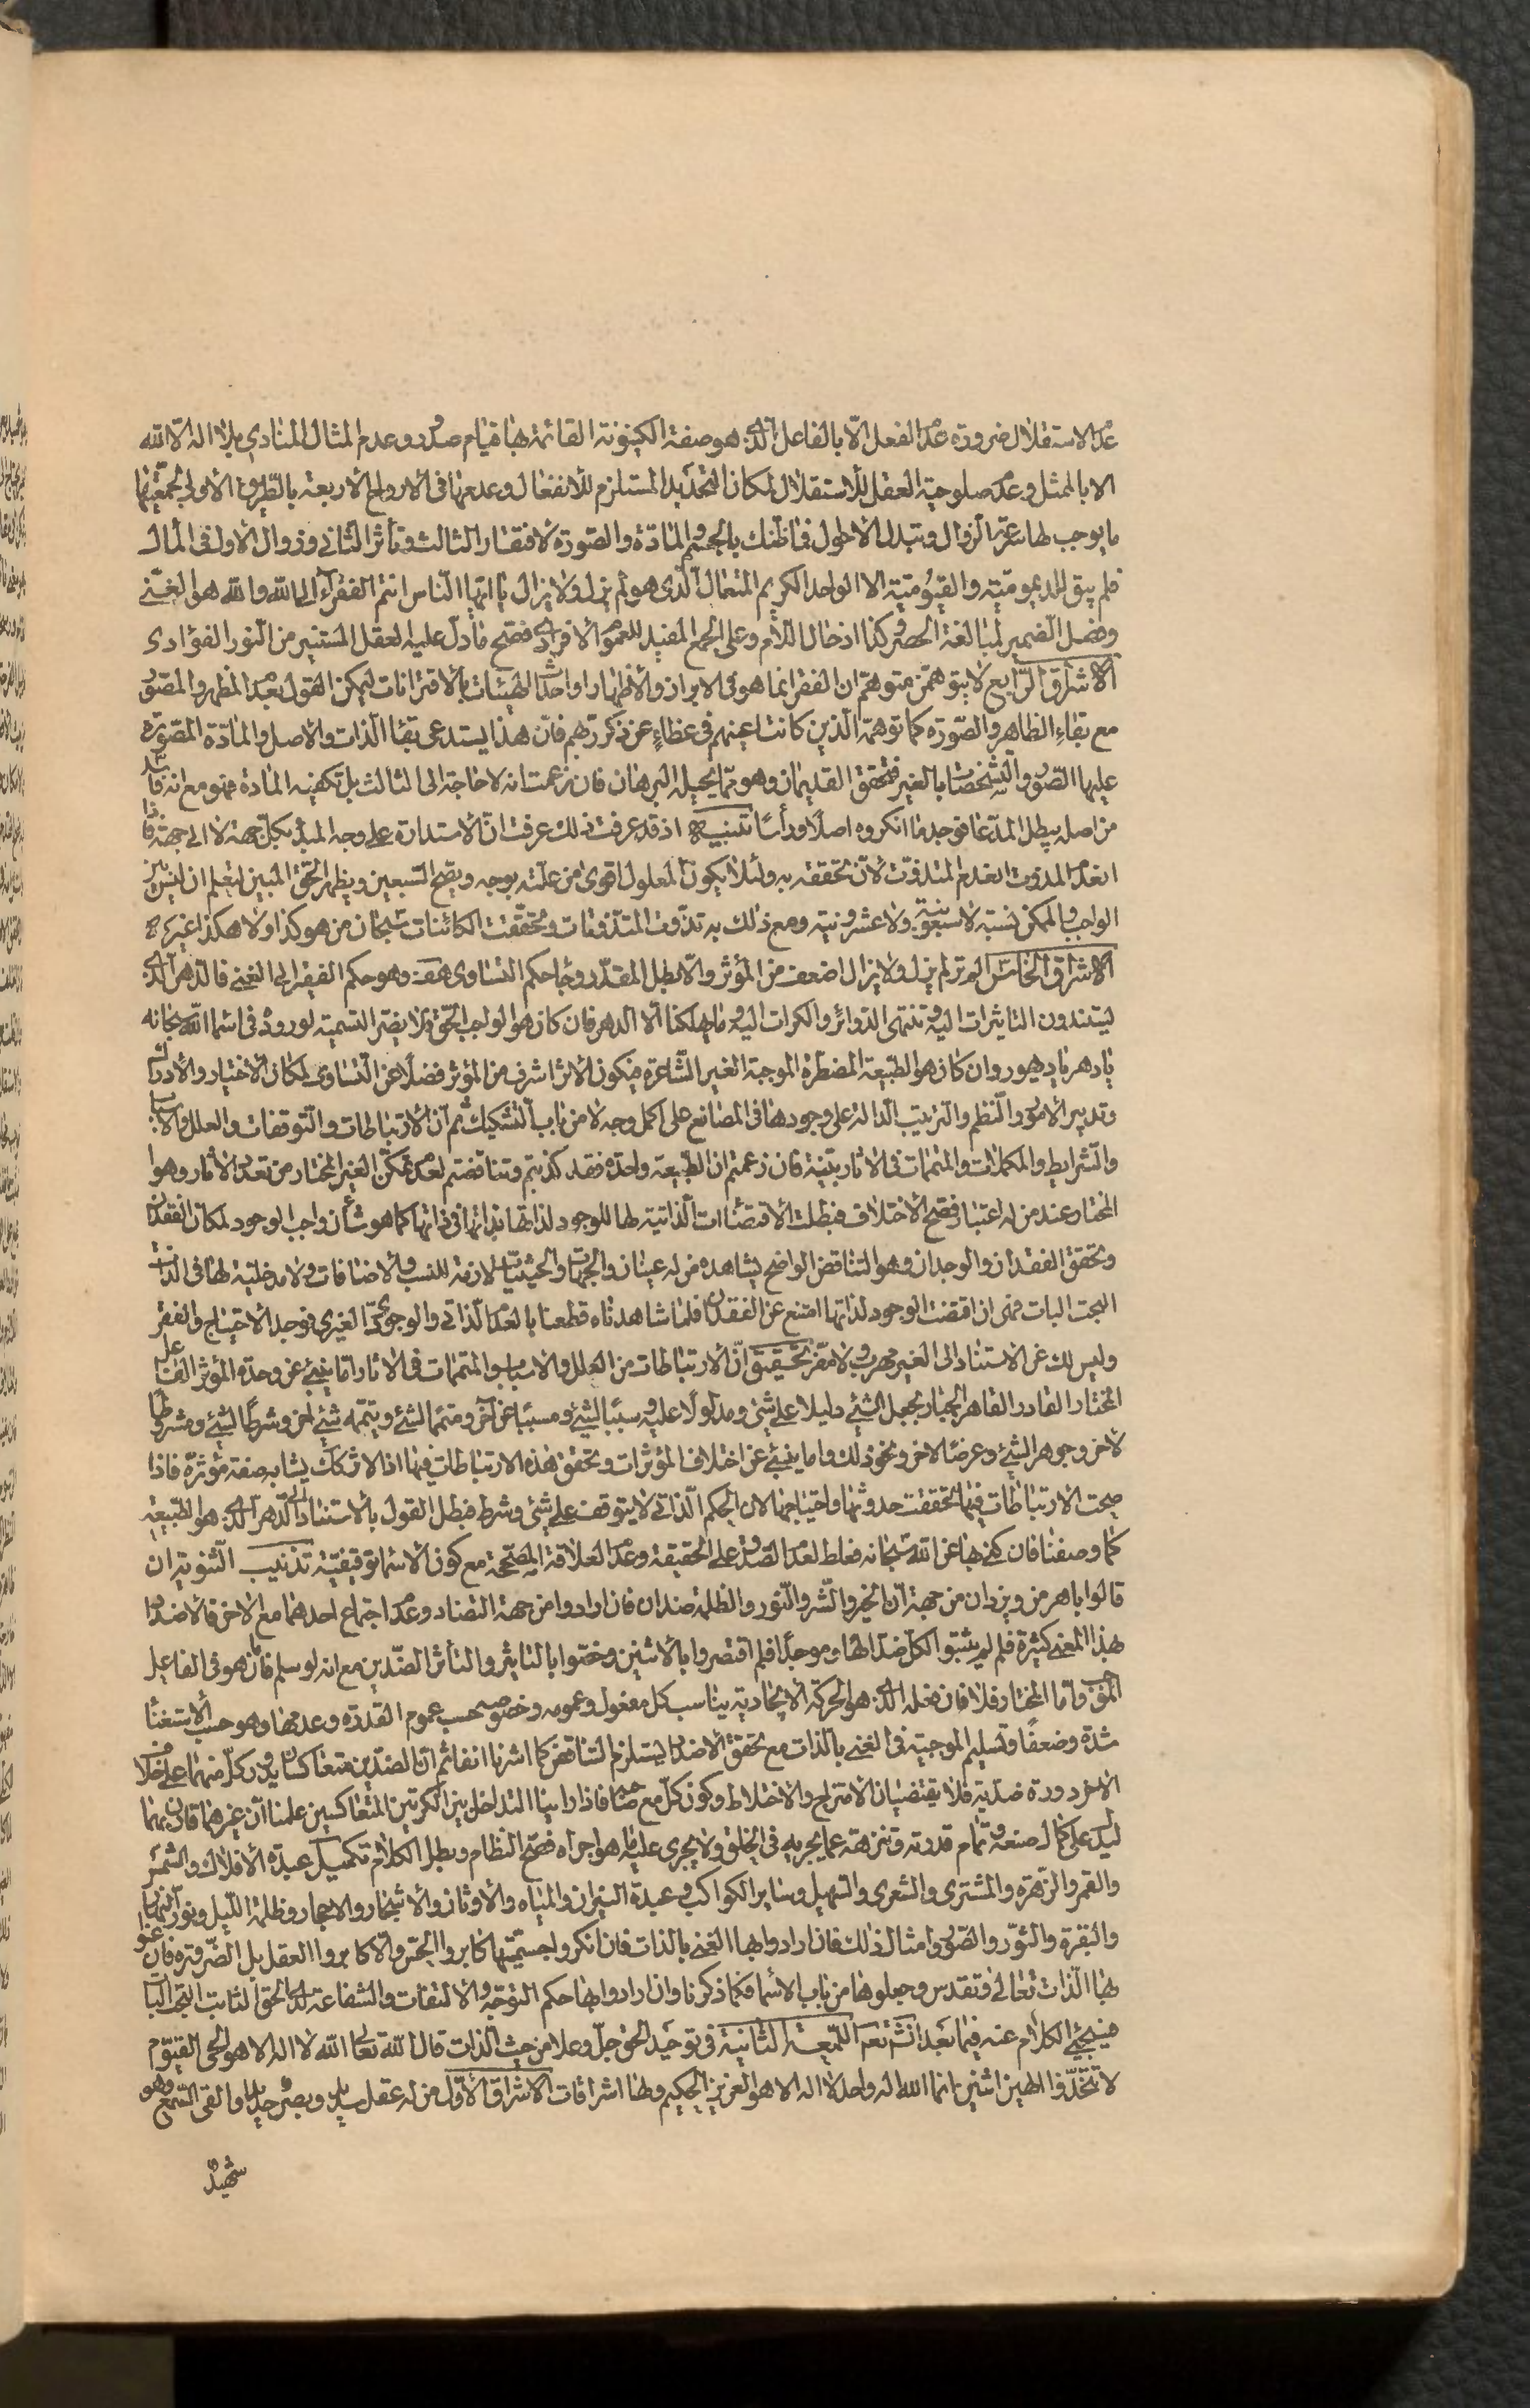 عدم الاستقلال ضرورة عدم الفعل الا بالفاعل الذي هو صفة الكينونة القائمة بها قيام صدور وعدم المثال المنادي بلا اله الا الله
الا بالممثل وعدم صلوحية العقل للاستقلال لمكان التحديد المستلزم للانفعال وعدمها في الارواح الاربعة بالطريق الاولى
ما يوجب لها سرعة الزوال وتبدل الاحوال فما ظنك بالجسم والمادة والصورة لافتقار الثالث وتأثر الثاني وزوال الاول في المآل
فلم يبق للديمومية والقيومية الا الواحد الكريم المتعال الذي هو لم يزل ولا يزال يا ايها الناس انتم الفقراء الى الله والله هو الغني
وفصل الضمير لمبالغة الحصر وكذا ادخال اللام وعلى الجمع المفيد للعموم الافرادي فصح ما دل عليه العقل المستنير من النور الفؤادي
الاشراق الرابع لا يتوهمن متوهم ان الفقر انما هو في الابراز والاظهار او احداث الهيئات بالاقترانات ليمكن القول بعدم المظهر والمصور
مع بقاء الظاهر والصورة كما توهمه الذين كانت اعينهم في غطاء عن ذكر ربهم فان هذا يستدعي بقاء الذات والاصل والمادة المصورة
عليها الصور والتشخصات بالغير فتحقق القديمان وهو مما يحيله البرهان فان زعمت انه لا حاجة الى الثالث بل تكفيه المادة فهو مع انه فاسد
من اصله يبطل المدعا فوجد ما انكروه اصلا ورأسا تنبيه اذ قد عرفت ذلك عرفت ان الاستدارة على وجه المبدء بكل جهة لا الى جهة فاذا
انعدم المذوت انعدم المتذوت لان تحققه به ولئلا يكون المعلول اقوى من علته بوجه ويظهر الحق المبين ليعلم ان ليس بين
الواجب والممكن نسبة لا سبعونية ولا عشرونية ومع ذلك به تذوت المتذوتات وتحققت الكائنات سبحان من هو كذا ولا هكذا غيره
الاشراق الخامس الاثر لم يزل ولا يزال اضعف من المؤثر والا بطل المقدر وجاء حكم التساوي هف وهو حكم الفقير الى الغني فالدهر الذي
يسندون التأثيرات اليه وتنتهي الدوائر والكرات اليه وما يهلكنا الا الدهر فان كان هو الواجب الحق فلا يضر التسمية لوروده في اسماء الله سبحانه
يا دهر يا ديهور وان كان هو الطبيعة المضطرة الموجبة الغير الشاعرة فيكون الاثر اشرف من المؤثر فضلا عن التساوي لمكان الاختيار والادراك
وتدبير الامور والنظم والترتيب الدالة على وجودها في الصانع على اكمل وجه لا من باب التشكيك ثم ان الارتباطات والتوقفات والعلل والاسباب
والشرايط والمكملات والمتممات في الاثار بينة فان زعمتم ان الطبيعة واحدة فقد كذبتم وتناقضتم لعدم تمكن الغير المختار من تعدد الاثار وهو
المختار عند من له اعتبار فصح الاختلاف فبطلت الاقتضاءات الذاتية لها للوجود لذاتها بذاتها في ذاتها كما هو شأن واجب الوجود لمكان الفقدان
وتحقق الفقدان والوجدان وهو التناقض الواضح يشاهده من له عينان والجهات والحيثيات لازمة للنسب والاضافات ولا مدخلية لها في الذات
البحت البات فهي ان اقتضت الوجود لذاتها امتنع عن الفقدان فلما شاهدناه قطعنا بالعدم الذاتي والوجود الغيري فوجد الاحتياج والفقر
وليس لك عن الاستناد الى الغير مهرب ولا مفر تحقيق ان الارتباطات من العلل والاسباب والمتممات في الاثار اما ينبئ عن وحدة المؤثر الفاعل
المختار القادر القاهر الجبار يجعل الشيء دليلا على شيء ومدلولا عليه وسببا لشيء ومسببا عن آخر ومتمما لشيء ويتممه شيء آخر وشرطا لشيء ومشروطا
لآخر وجوهر الشيء وعرضا لآخر ونحو ذلك واما ينبئ عن اختلاف المؤثرات وتحقق هذه الارتباطات فيها اذ الاثر يشابه صفة مؤثره فاذا
صحت الارتباطات فيها تحققت حدوثها واحتياجها لان الحكم الذاتي لا يتوقف على شيء وشرط فبطل القول بالاستناد الى الدهر الذي هو الطبيعة
كما وصفنا فان كني بها عن الله سبحانه فغلط لعدم الصدق على الحقيقة وعدم العلاقة المصححة مع كون الاسماء توقيفية تذنيب الثنوية ان
قالوا باهرمن ويزدان من جهة ان الخير والشر والنور والظلمة ضدان فان ارادوا من جهة التضاد وعدم اجتماع احدهما مع الاخر فالاضداد
بهذا المعنى كثيرة فلم لم يثبتوا لكل ضد الها وموجدا فلم اقتصروا بالاثنين وخصوا بالتأثير والتأثر الضدين مع انه لو سلم فانما هو في الفاعل
الموجب واما المختار فلا فان فعله الذي هو الحركة الايجادية يناسب كل مفعول وعمومه وخصوصه حسب عموم القدرة وعدمها وهو حسب الاستغناء
شدة وضعفا وتسليم الموجبية في الغني بالذات مع تحقق الاضداد يستلزم التناقض كما اشرنا آنفا ثم ان الضدين متعاكسان يدور كل منهما على خلاف
الاخر دورة ضدية فلا يقتضيان الامتزاج والاختلاط وكون كل مع صاحبه فاذا راينا التداخل بين الكرتين المتعاكسين علمنا ان غيرهما قارن بهما
ليدل على كمال صنعه وتمام قدرته وتنزهه عما يجريه في الخلق ولا يجري عليه ما هو اجراه فصح النظام وبطل الكلام تكميل عبدة الافلاك والشمس
والقمر والزهرة والمشتري والشعرى والسهيل وساير الكواكب وعبدة النيران والمياه والاوثان والاشجار والاحجار وظلمة الليل ونور النهار
والبقرة والثور والصور وامثال ذلك فان ارادوا بها الغني بالذات فان انكروا جسميتها كابروا الحس والا كابروا العقل بل الضرورة فان عنوا
بها الذات تعالى وتقدس وجعلوها من باب الاسماء فكما ذكرنا وان ارادوا بها حكم التوجه والالتفات والشفاعة لدى الحق الثابت البحت البات
فسيجيء الكلام عنه فيما بعد انشاء الله اللمعة الثانية في توحيد الحق جل وعلا من حيث الذات قال الله تعالى الله لا اله الا هو الحي القيوم
لا تتخذوا الهين اثنين انما الله اله واحد لا اله الا هو العزيز الحكيم ولها اشراقات الاشراق الاول من له عقل سديد وبصر حديد او القى السمع وهو
شهيد